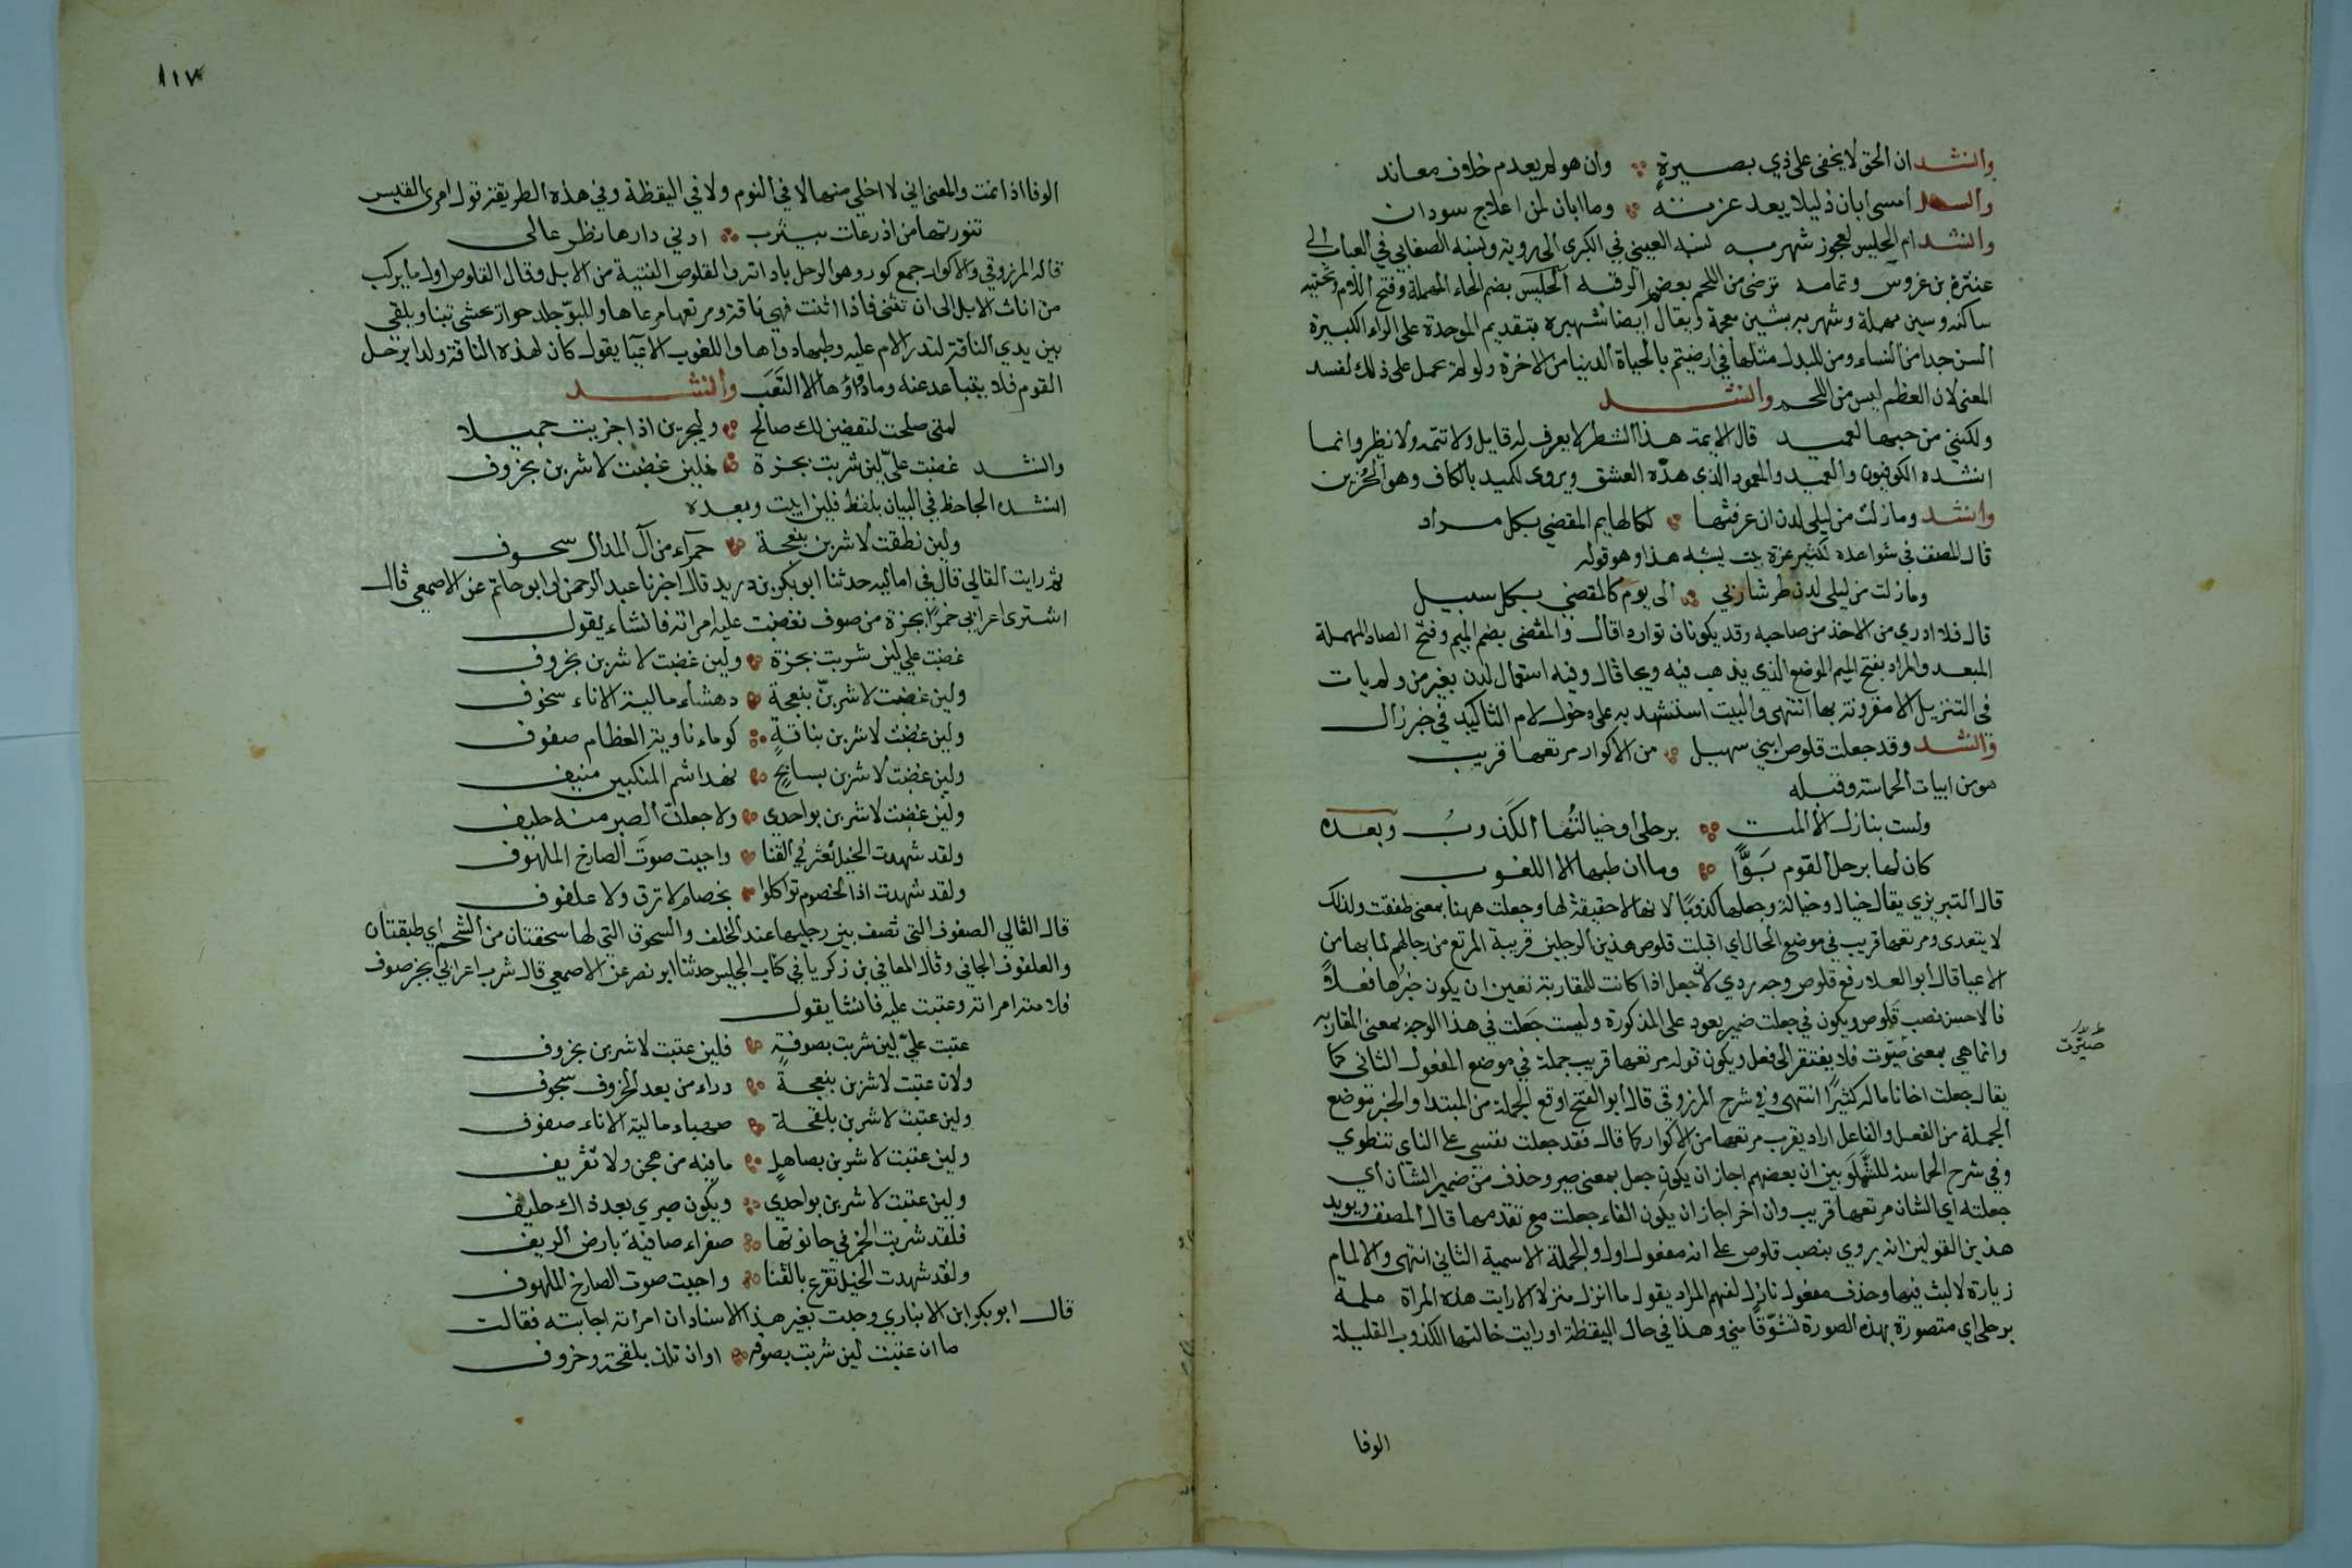 وانشد ان الحق لا يخفى على ذي بصيرة وان هو لم يعدم خلاف معاند
وانشد امسى ابان ذليلا بعد عزته وما ابان لمن اعلاج سودان
وانشد ام الحليس لعجوز شهربه نسبه العيني في الكبرى الى روبة ونسبه الصغاني في العباب الى
عنترة بن عروس وتمامه ترضى من اللحم بعظم الرقبه الحليس بضم الحاء المهملة وفتح اللام وتحتيه
ساكنه وسين مهملة وشهربه بشين معجمة ويقال ايضا شهبره بتقديم الموحدة على الراء الكبيرة
السن جدا من النساء ومن للبدل مثلها في ارضيتم بالحياة الدنيا من الاخرة ولو لم يحمل على ذلك لفسد
المعنى لان العظم ليس من اللحم وانشد
ولكنني من حبها لعميد قال الايمة هذا الشطر لا يعرف له قايل ولا تتمه ولا نظير وانما
انشده الكوفيون والعميد والمعمود الذي هده العشق ويروى لكميد بالكاف وهو الحزين
وانشد وما زلت من ليلى لدن ان عرفتها لكالهايم المقصي بكل مراد
قال المصنف في شواهده لكثير عزة بيت يشبه هذا وهو قوله
وما زلت من ليلى لدن طر شاربي الى يوم كالمقصي بكل سبيل
قال فلا ادري من الاخذ من صاحبه وقد يكونان تواردا قال والمقصى بضم الميم وفتح الصاد المهملة
المبعد والمراد بفتح الميم الموضع الذي يذهب فيه ويجا قال وفيه استعمال لدن بغير من ولم يات
في التنزيل الا مقرونة بها انتهى والبيت استشهد به على دخول لام التاكيد في خبر زال
وانشد وقد جعلت قلوص ابني سهيل من الاكوار مرتعها قريب
هو من ابيات الحماسة وقبله
ولست بنازل الا المت برحلي او خيالتها الكذوب وبعده
كان لها برحل القوم بوا وما ان طبها الا اللغوب
قال التبريزي يقال خيال وخيالة وجعلها كذوبا لانها لا حقيقة لها وجعلت ههنا بمعنى طفقت ولذلك
لا يتعدى ومرتعها قريب في موضع الحال اي اقبلت قلوص هذين الرجلين قريبة المرتع من رحالهم لما بها من
الاعيا قال ابو العلا رفع قلوص وجه ردي لان جعل اذا كانت للمقاربة تعين ان يكون خبرها فعلا
فالاحسن نصب قلوص ويكون في جعلت ضمير يعود على المذكورة وليست جعلت في هذا الوجه بمعنى المقاربه
وانما هي بمعنى صيرت فلا يفتقر الى فعل ويكون قوله مرتعها قريب جملة في موضع المفعول الثاني كما
صيرت
يقال جعلت اخانا ماله كثيرا انتهى وفي شرح المرزوقي قال ابو الفتح اوقع الجملة من المبتدا والخبر موضع
الجملة من الفعل والفاعل اراد يقرب مرتعها من الاكوار كما قال فقد جعلت نفسي على الناي تنطوي
وفي شرح الحماسة للشلوبين ان بعضهم اجاز ان يكون جعل بمعنى صير وحذف من ضمير الشان اي
جعلته اي الشان مرتعها قريب وان اخر اجاز ان يكون الغاء جعلت مع تقدمها قال المصنف ويويد
هذين القولين انه يروي بنصب قلوص على انه مفعول اول والجملة الاسمية الثاني انتهى والالمام
زيارة لا لبث فيها وحذف مفعول نازل لفهم المراد يقول ما انزل منزلا الا رايت هذه المراة ملمة
برحلي اي متصورة بهذه الصورة تشوقا مني وهذا في حال اليقظة او رايت خالتها الكذوب القليلة
الوفا
١١٧
الوفا اذا نمت والمعنى اني لا اخلي منها لا في النوم ولا في اليقظة وفي هذه الطريقة قول امرى القيس
تنورتها من اذرعات بيثرب ادني دارها نظر عالى
قاله المرزوقي والاكوار جمع كور وهو الرحل باداته والقلوص الفتية من الابل وقال القلوص اول ما يركب
من اناث الابل الى ان تثنى فاذا اثنت فهي ناقة ومرتعها مرعاها والبو جلد حوار يحشى تبنا ويلقى
بين يدي الناقة لتدر الام عليه وطبها داوها واللغوب الاعيا يقول كان لهذه الناقة ولدا برحل
القوم فلا يتباعد عنه وما داؤها الا التعب وانشد
لمتى صلحت لتقضين لك صالح وليجزين اذا جزيت جميلا
وانشد غضبت علي لين شربت بجزة فلين غضبت لاشربن بخروف
انشده الجاحظ في البيان بلفظ فلين ابيت وبعده
ولين نطقت لاشربن بنعجة حمراء من آل المدال سحوف
ثم رايت القالي قال في اماليه حدثنا ابو بكر بن دريد قال اخبرنا عبد الرحمن او ابو حاتم عن الاصمعي قال
اشترى اعرابي خمرا بجزة من صوف فغضبت عليه امراته فانشاء يقول
غضبت علي لين شربت بجزة ولين غضبت لاشربن بخروف
ولين غضبت لاشربن بنعجة دهشاء مالية الاناء سحوف
ولين غضبت لاشربن بناقة كوماء ناوية العظام صفوف
ولين غضبت لاشربن بسابح نهد اشم المنكبين منيف
ولين غضبت لاشربن بواحدي ولاجعلن الصبر منه حليف
ولقد شهدت الخيل تعثر في القنا واجبت صوت الصارخ الملهوف
ولقد شهدت اذا الخصوم تواكلوا بخصام لا نزق ولا علفوف
قال القالي الصفوف التي تصف بين رجليها عند الحلف والسحوف التي لها سحفتان من الشحم اي طبقتان
والعلفوف الجاني وقال المعافى بن زكريا في كتاب الجليس حدثنا ابو نصر عن الاصمعي قال شرب اعرابي بجز صوف
فلامته امراته وعتبت عليه فانشا يقول
عتبت علي لين شربت بصوفة فلين عتبت لاشربن بخروف
ولان عتبت لاشربن بنعجة دراء من بعد الخروف سحوف
ولين عتبت لاشربن بلقحة صهباء مالية الاناء صفوف
ولين عتبت لاشربن بصاهل ما فيه من هجن ولا تقريف
ولين عتبت لاشربن بواحدي ويكون صبري بعد ذاك حليف
فلقد شربت الخمر في حانوتها صفراء صافية بارض الريف
ولقد شهدت الخيل تقرع بالقنا واجبت صوت الصارخ الملهوف
قال ابو بكر ابن الانباري وحدثت بغير هذا الاسناد ان امراته اجابته فقالت
ما ان عتبت لين شربت بصوفة او ان تلذ بلقحة وخروف